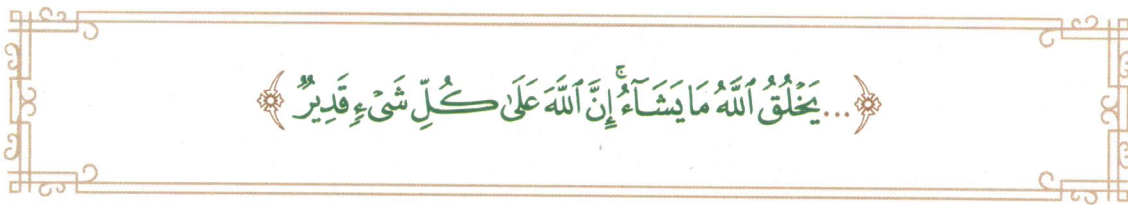 ﴿...يَخْلُقُ ٱللَّهُ مَا يَشَآءُۚ إِنَّ ٱللَّهَ عَلَىٰ كُلِّ شَىْءٍ قَدِيرٌ﴾